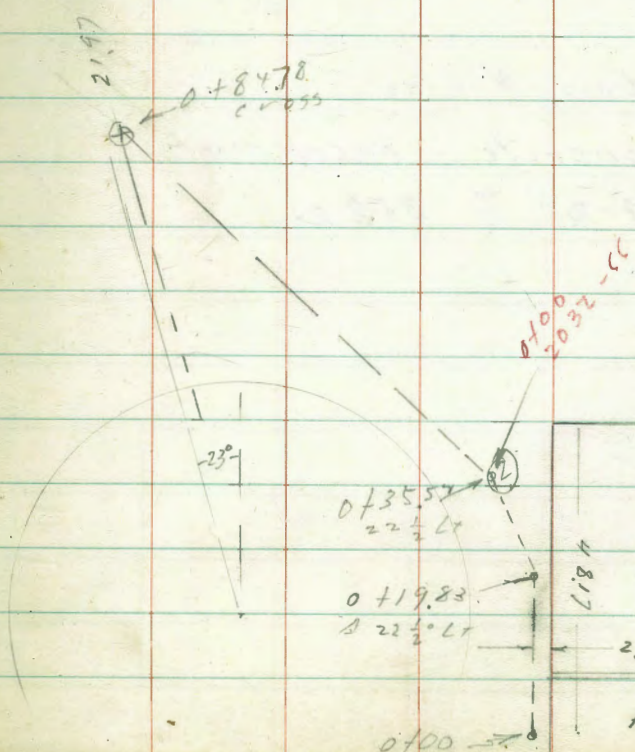 21.97
0+84.78
cross
0+00
2032-CC
23°
0+35.57
22½ Lt
0+19.83
Δ 22½° Lt
0+00